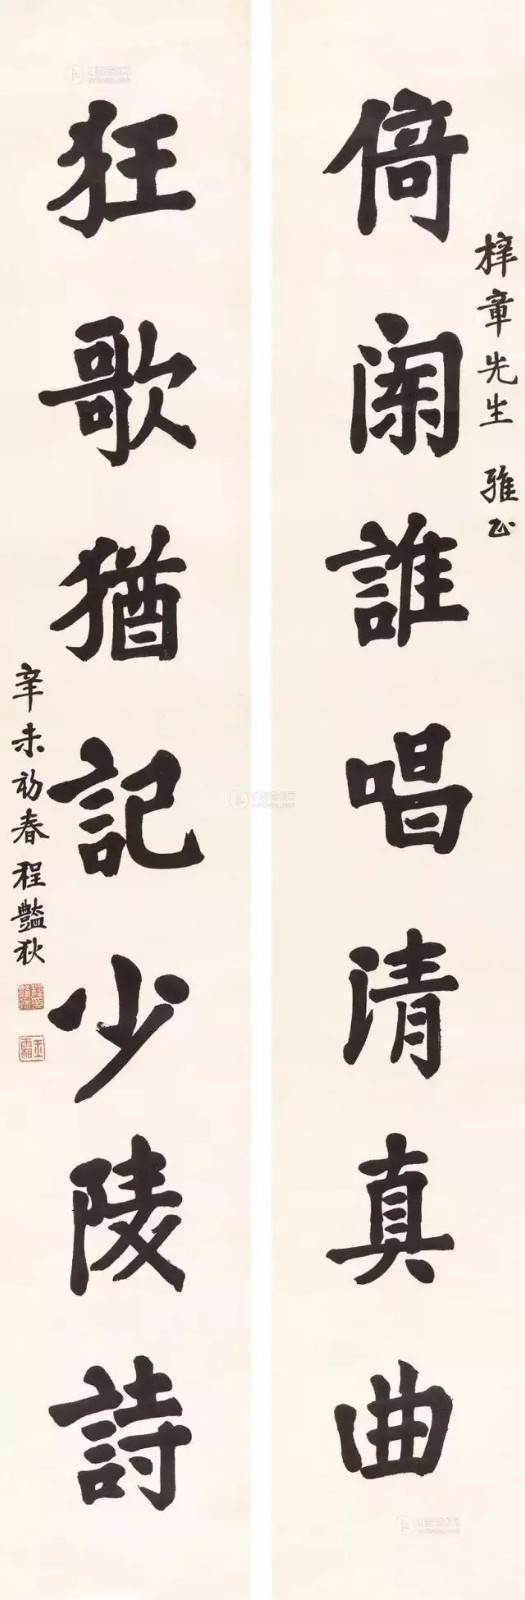 梓章先生 雅正
倚闌誰唱清真曲
狂歌猶記少陵詩
辛未初春程豔秋
玉霜